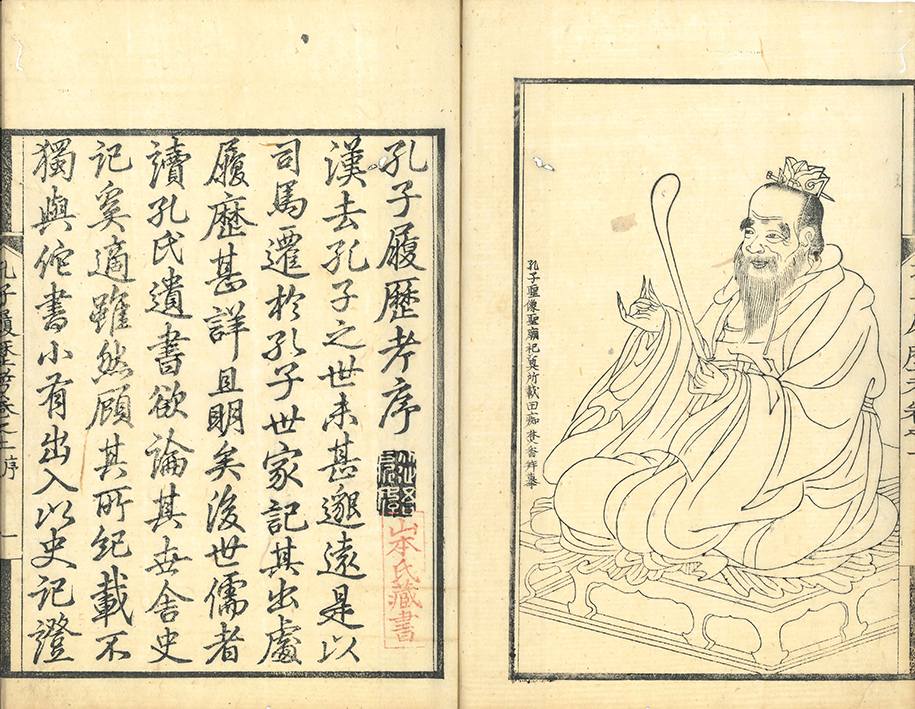 孔子聖像聖廟祀奠所載田痴
孔子履歴考序
山本氏藏書
漢去孔子之世未甚邈遠是以
司馬遷於孔子世家記其出處
履歴甚詳且明矣後世儒者
讀孔氏遺書欲論其世舍史
記奚適雖然顧其所紀載不
獨與佗書小有出入以史記證
孔子履歴考巻之上 序 一